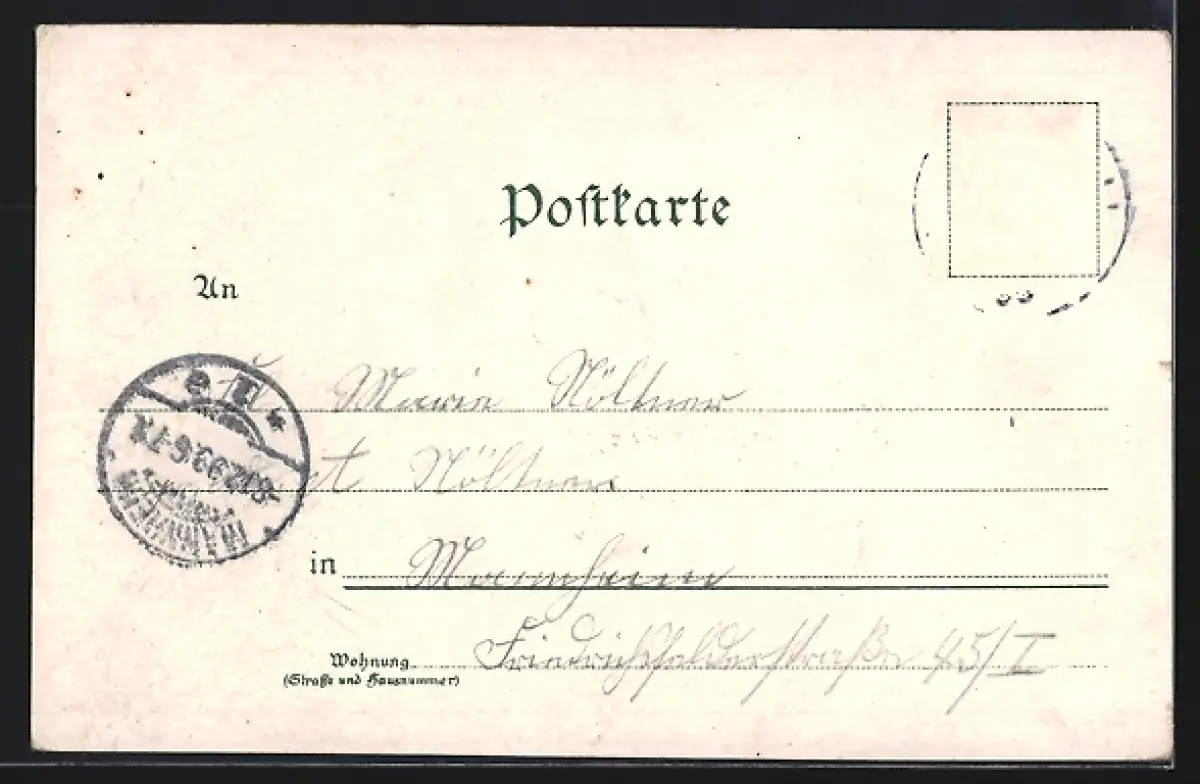 Postkarte
An
Marie Nöltner
Nöltner
in Mannheim
Wohnung Friedrichsfelderstraße 45/I
(Straße und Hausnummer)
MANNHEIM